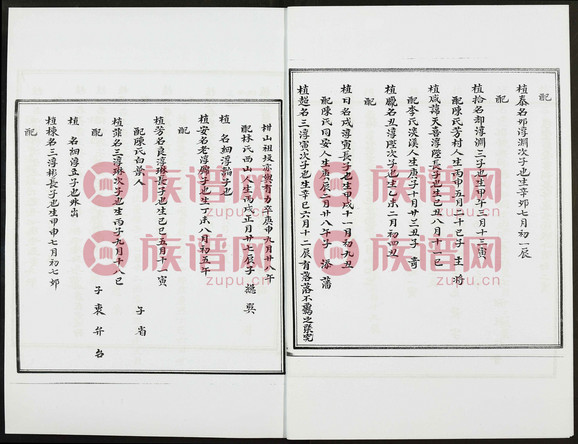 配
植泰名邪淳澗次子也生辛邜七月初一辰
配
植拾名却淳澗三子也生甲午三月十三寅
配陳氏芳村人生丙申五月二十巳子 生 将
植咸諱天喜淳陞長子也生己丑八月十一巳
配李氏淡溪人生庚子十月廿二丑子
植職名丑淳陞次子也生己未二月初四丑
配
植日名戌淳寅長子也生甲戌十一月初九丑
配陳氏同安人生庚辰二月廿八午子 添 藩
植超名三淳寅次子也生辛巳六月十二辰
柑山祖坟亦與有力卒庚申九月廿八午
配林氏西山人生丙戌正月廿七辰子 興
植 名細淳論子也
植安名老淳賜子也生丁未八月初五午
配
植芳名良淳琳長子也生己巳五月十一寅
配陳氏白黄人 子 省
植 名三淳琳次子也生丙子九月十八巳
配 子 衷 弁 名
植 名細淳立子也殊出
植棟名三淳彬長子也生甲申七月初七邜
配
族谱网
zupu.cn
族谱网
zupu.cn
族谱网
zupu.cn
族谱网
zupu.cn